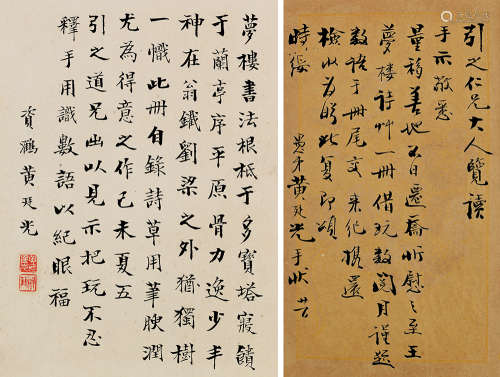 引之仁兄大人覽讀
手示敬悉
量移善地不日遷喬忻慰之至王
夢樓詩艸一冊借玩數閱月謹題
數語于冊尾交來伻携還
檢收為盼此复即頌
時綏
愚弟黃廷光手狀 廿
夢樓書法根柢于多寶塔寢饋
于蘭亭序平原骨力逸少丰
神在翁鐵劉梁之外猶獨樹
一幟此冊自錄詩草用筆腴潤
尤為得意之作己未夏五
引之道兄出以見示把玩不忍
釋手用識數語以紀眼福
資 黃廷光